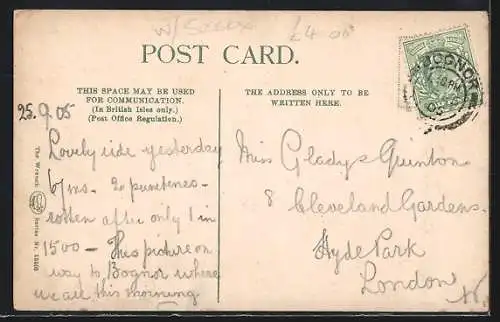 W/Sussex £4 00
POST CARD.
BOGNOR
THIS SPACE MAY BE USED
FOR COMMUNICATION.
(In British Isles only.)
(Post Office Regulation.)
THE ADDRESS ONLY TO BE
WRITTEN HERE.
25.9.05
Lovely ride yesterday
67 ms. 2 punctures -
rotten after only 1 in
1500 - This picture on
way to Bognor where
we are this morning
Miss Gladys Quinton
8 Cleveland Gardens.
Hyde Park
London W.
The Wrench Series Nr.